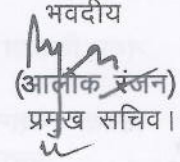 भवदीय
(आलोक रंजन)
प्रमुख सचिव।